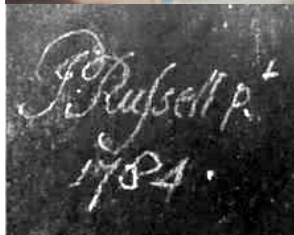 P: Ruſsell p.ᵗ
1784.